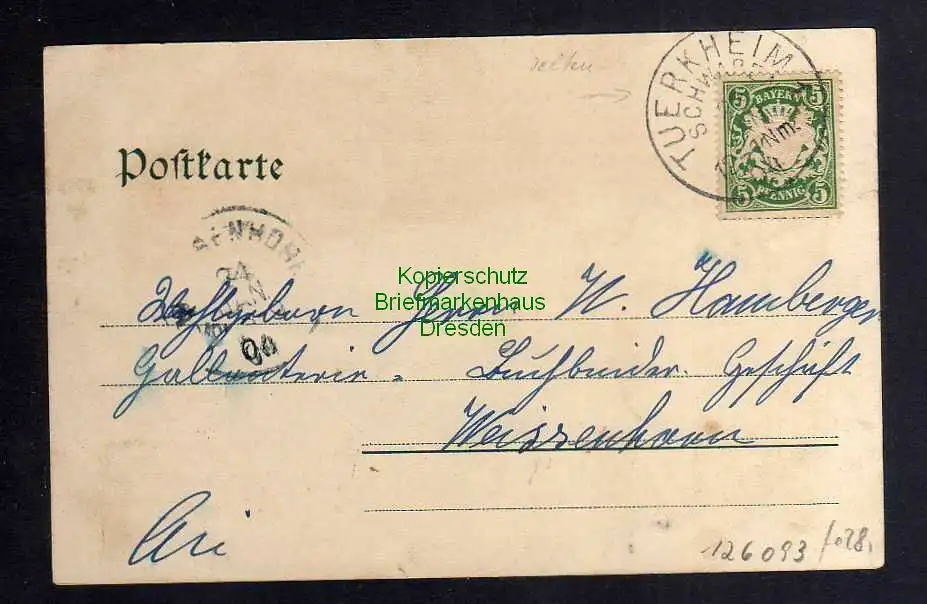 selten
TUERKHEIM
SCHWABEN
5 BAYERN 5
5 PFENNIG 5
Postkarte
24
JAN
00
Kopierschutz
Briefmarkenhaus
Dresden
Wohlgeborn Herrn N. Hamberger
Gallanterie- Buchbinder Geschäft
Weissenhorn
126093